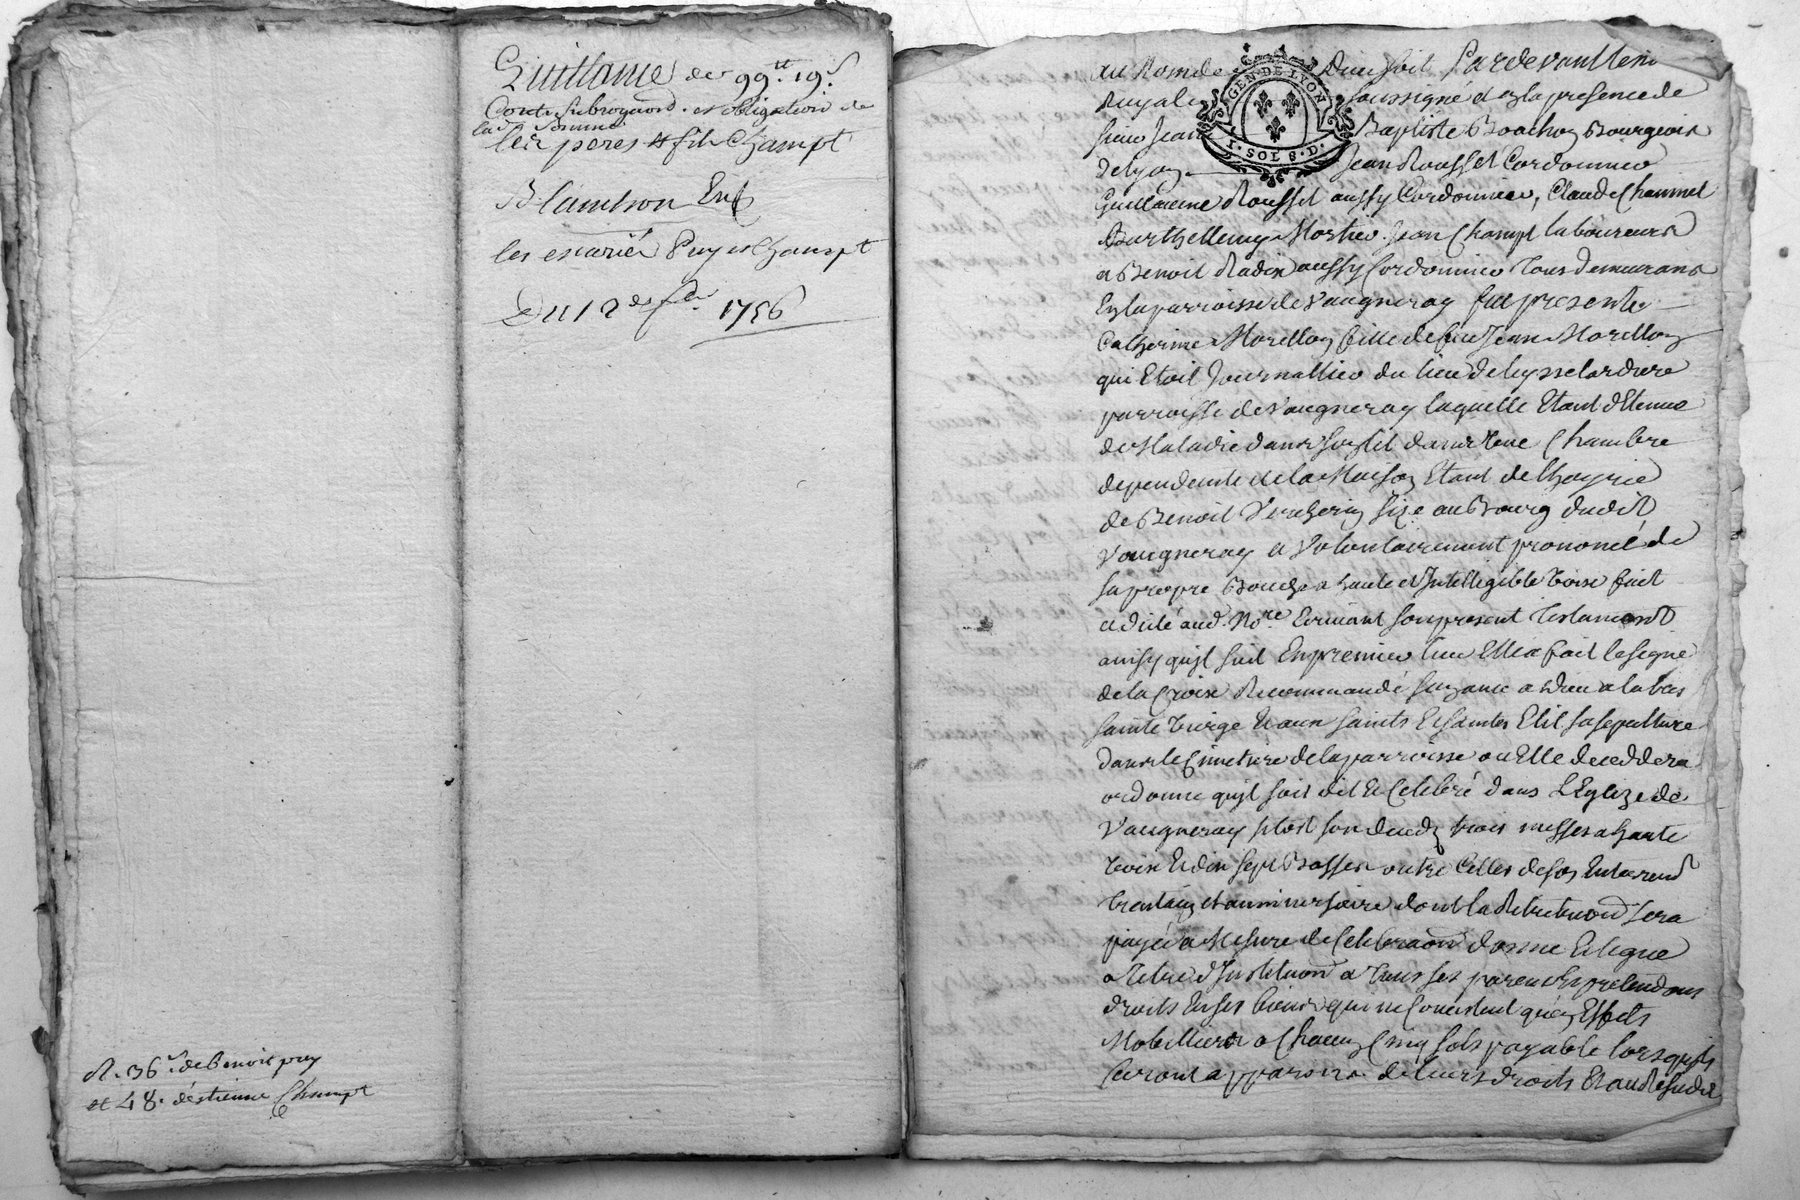 Quittance de 99lt 19s
Cont. Subrogaon. et obligation de
la Somme
les peres & fils Champt
Blainbron Ent
les mariés Puy et Champt
Du 12e 1756
R. 36s de Benoit puy
et 48s d'éstienne Champt
GEN. DE LYON
I. SOL 8. D.
au Nom de Dieu soit Pardevant le no
Royal soussigné et en la presence de
sieur Jean Baptiste Boachon Bourgeois
de Lyon Jean Rousset Cordonnier
Guillaume Rousset aussy Cordonnier, Claude Chammet
Barthellemy Mortier Jean Champt laboureurs
et Benoit Radix aussy Cordonnier tous demeurans
En la parroisse de Vaugneray fut presente
Catherine Morellon fille de feu Jean Morellon
qui Etoit Journallier du lieu de
parroisse de Vaugneray laquelle Etant detenue
de Maladie dans son lit dans Une Chambre
dependante de la Maison Etant de l'hoyrie
de Benoit Vercherin size au Bourg dudit
Vaugneray a Volontairement prononcé de
sa propre Bouche a haute et Intelligible Voix fait
et dicté aud. Nore Ecrivant son present testament
ainsy qu'il suit En premier lieu Elle a fait le signe
de la Croix Recommandé son ame a Dieu a la bes
sainte Vierge Et aux saints Et saintes Elit sa sepulture
dans le Cimetiere de la parroisse ou Elle deceddera
ordonne qu'il soit dit Et Celebré dans L'Eglize de
Vaugneray sitost son decedz trois messes a haute
Voix Et dix sept Basses outre Celles de son Enterremt
trentain et anniversaire dont la Retribuon sera
payée a Mesure de Celebraon donne Et legue
a titre d'Instituon a tous ses parens Et pretendans
droits En ses biens qui ne Consistent qu'en Effets
Mobilliers a Chacun Cinq sols payable lorsqu'ils
feront apparoir de leurs droits Et au Residu